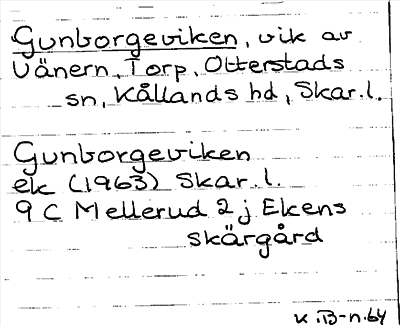 Gunborgeviken, vik av
Vänern, Torp, Otterstads
sn, Kållands hd, Skar.l.
Gunborgeviken
ek (1963) Skar.l.
9 C Mellerud 2 j Ekens
skärgård
K.B-n.64